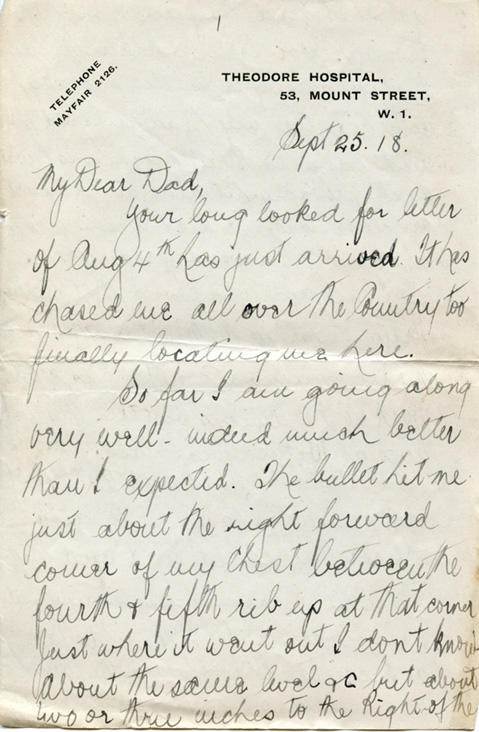 1
TELEPHONE
MAYFAIR 2126.
THEODORE HOSPITAL,
53, MOUNT STREET,
W. 1.
Sept 25. 18.
My Dear Dad,
Your long looked for letter
of Aug 4th has just arrived. It has
chased me all over the Country too
finally locating me here.
So far I am going along
very well - indeed much better
than I expected. The bullet hit me
just about the right forward
corner of my Chest between the
fourth & fifth rib up at that corner
Just where it went out I dont know
About the same level &c but about
two or three inches to the Right of the